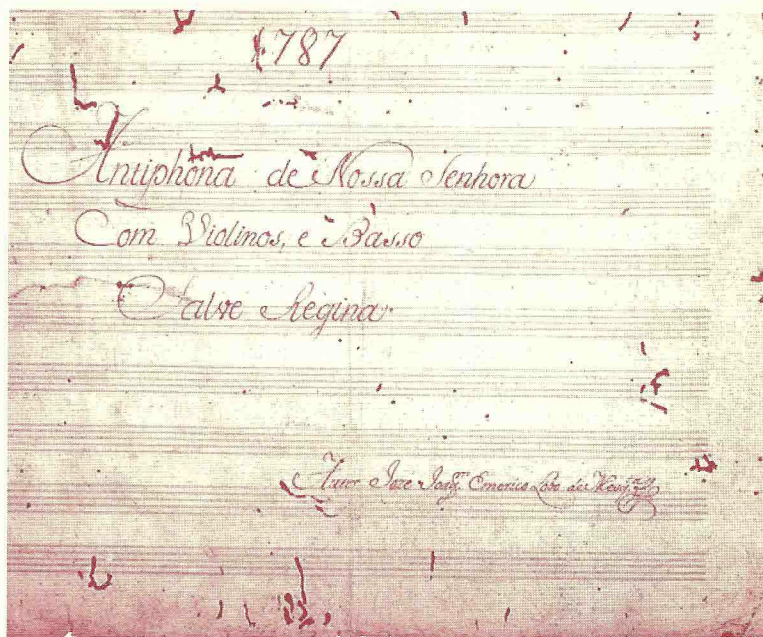 1787
Antiphona de Nossa Senhora
Com Violinos, e Basso
Salve Regina
Autor Joze Joaq.m Emerico Lobo de Mesq.ta